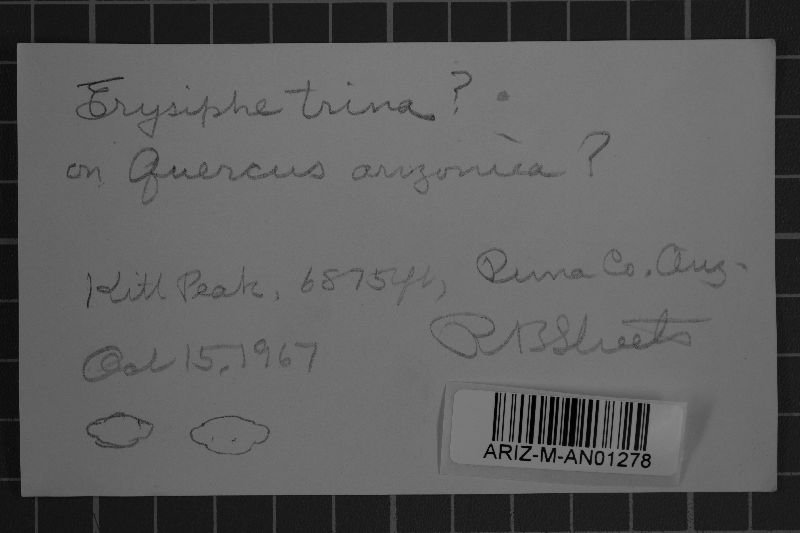 Erysiphe trina?
on Quercus arizonica?
Kitt Peak, 6875 ft, Pima Co. Ariz.
Oct 15, 1967
R B Streets
ARIZ-M-AN01278